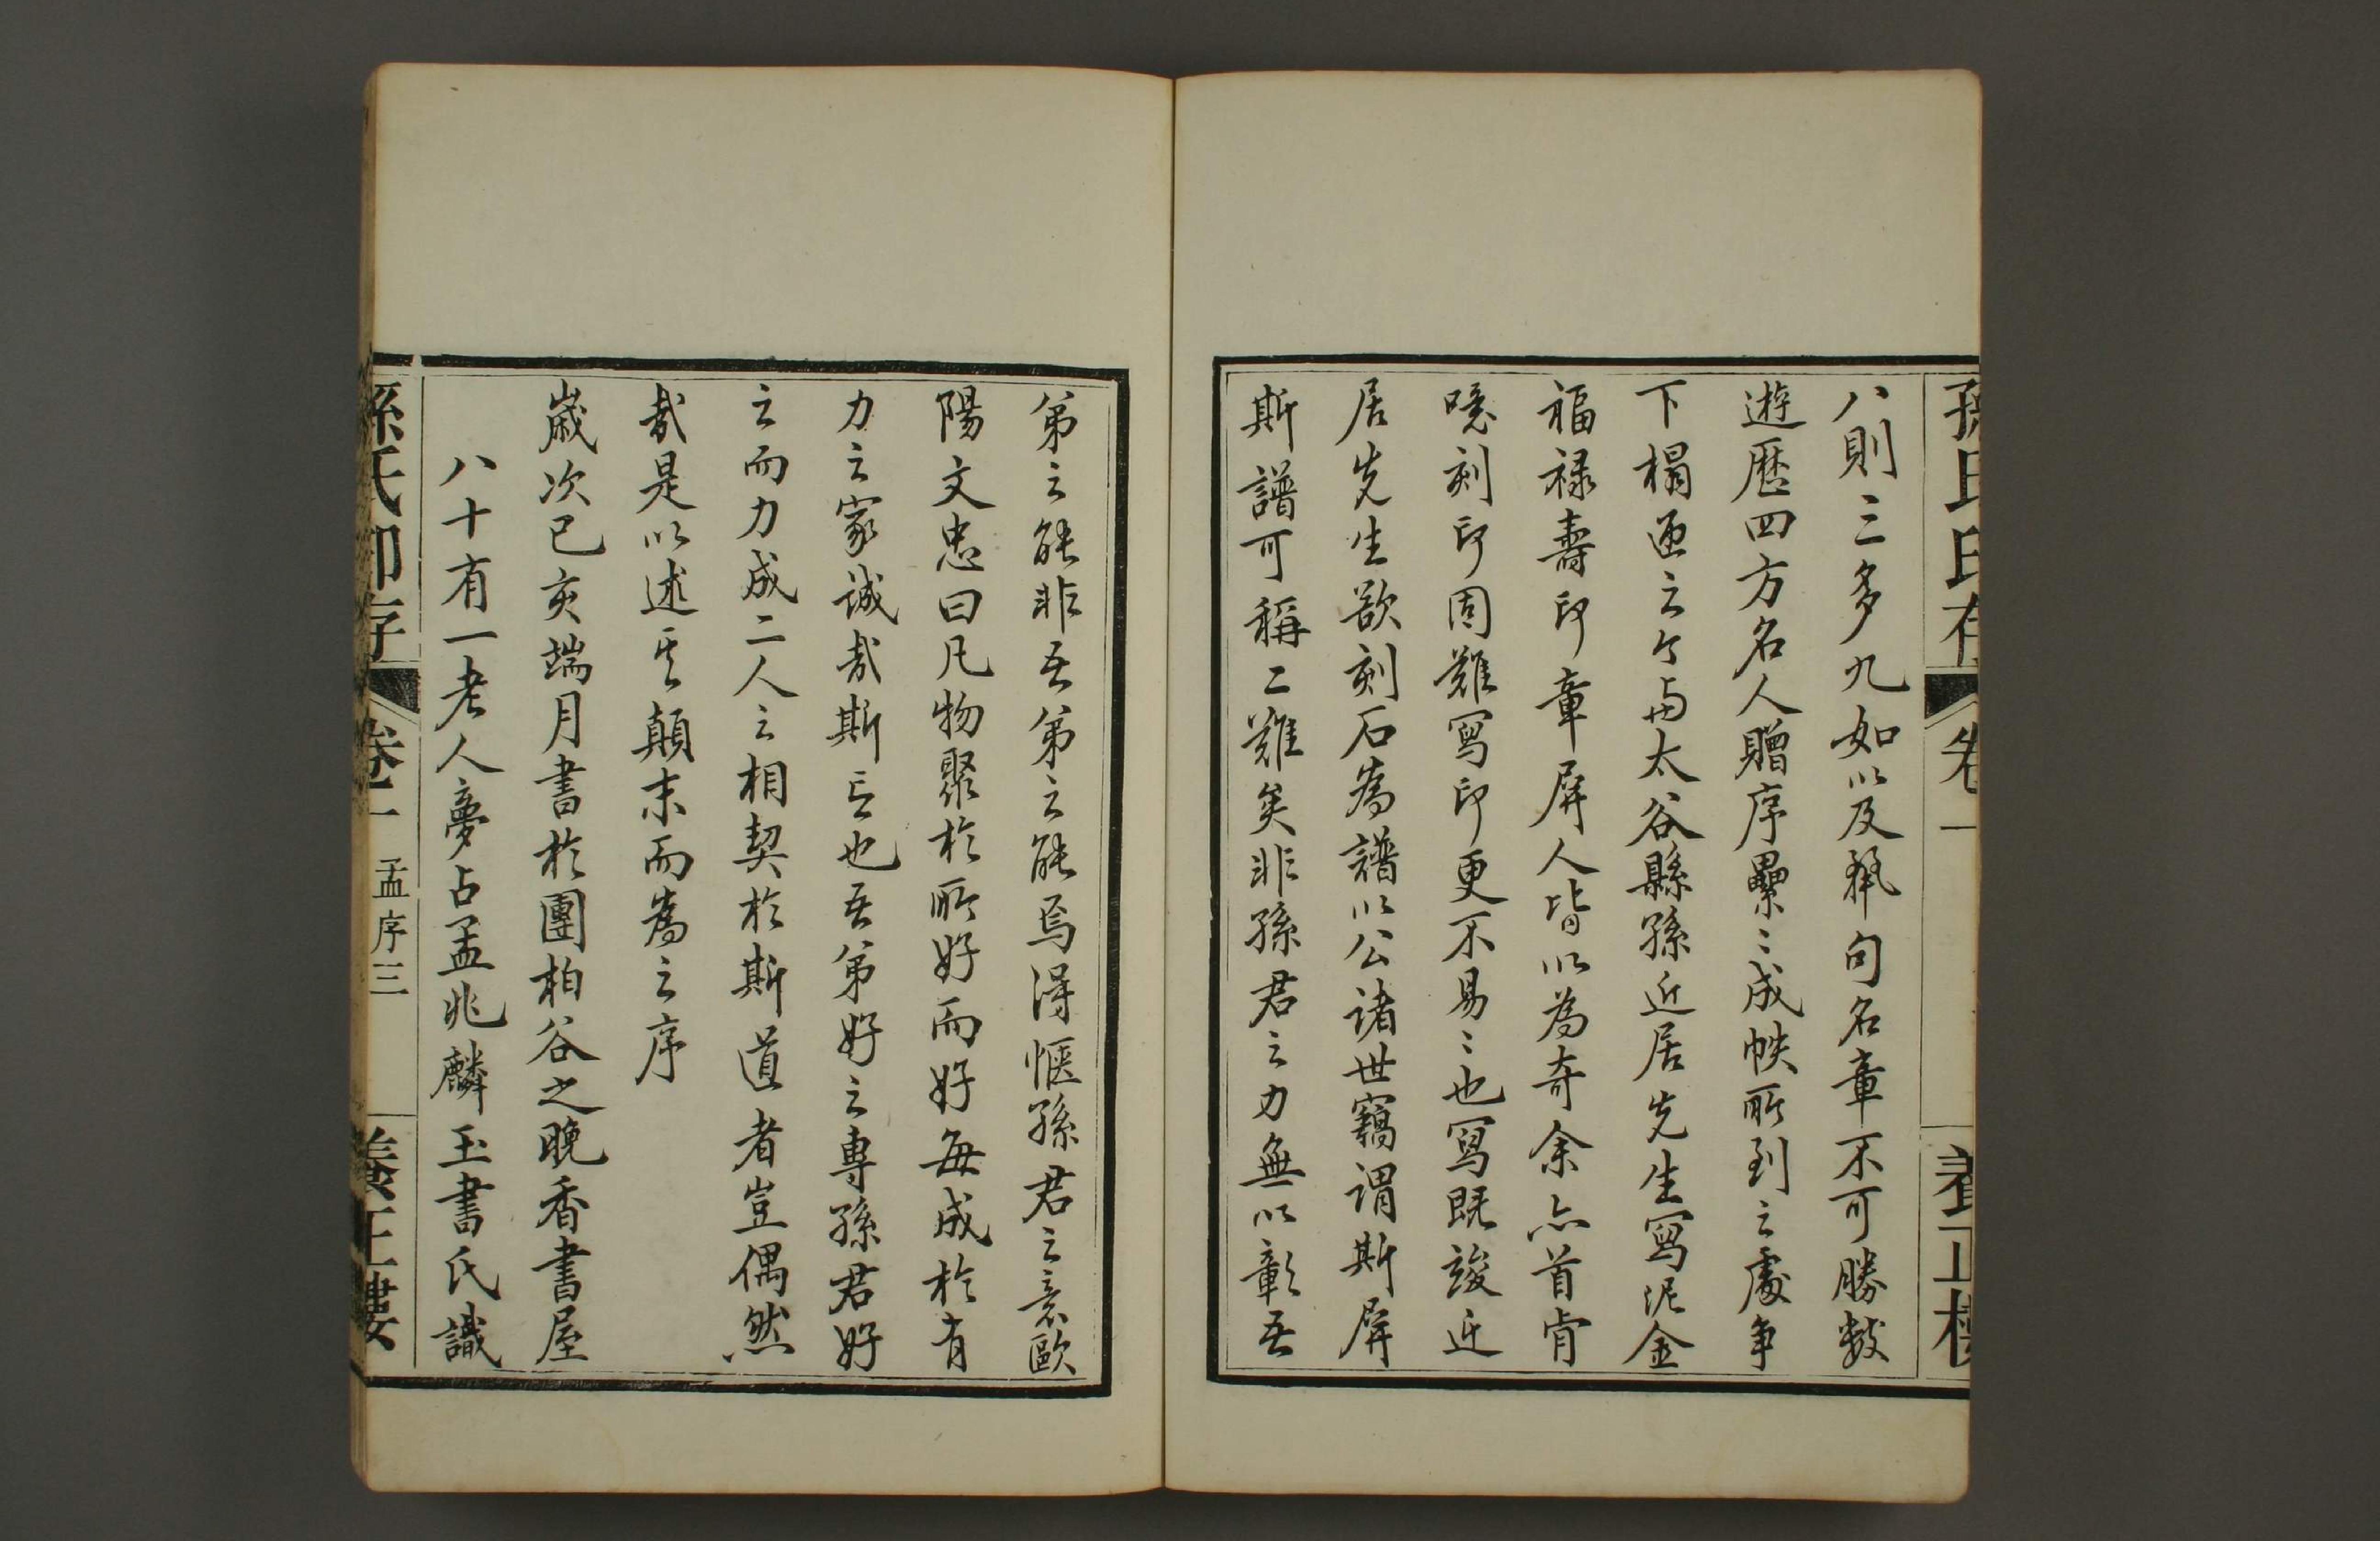 孫氏印存 卷一 養正樓
八則三多九如以及瓻句名章不可勝數
遊歷四方名人贈序纍〻成帙所到之處爭
下榻迺之今與太谷縣孫近居先生寫泥金
福祿壽印章屏人皆以為奇余亦首肯
噫刻印固難寫印更不易〻也寫既竣近
居先生欲刻石為譜以公諸世竊謂斯屏
斯譜可稱二難矣非孫君之力無以彰吾
弟之能非吾弟之能焉得愜孫君之意歐
陽文忠曰凡物聚於所好而好每成於有
力之家誠哉斯言也吾弟好之專孫君好
之而力成二人之相契於斯道者豈偶然
哉是以述其顛末而為之序
歲次己亥端月書於團柏谷之晚香書屋
八十有一老人夢占孟兆麟玉書氏識
孫氏印存 卷一 孟序三 養正樓